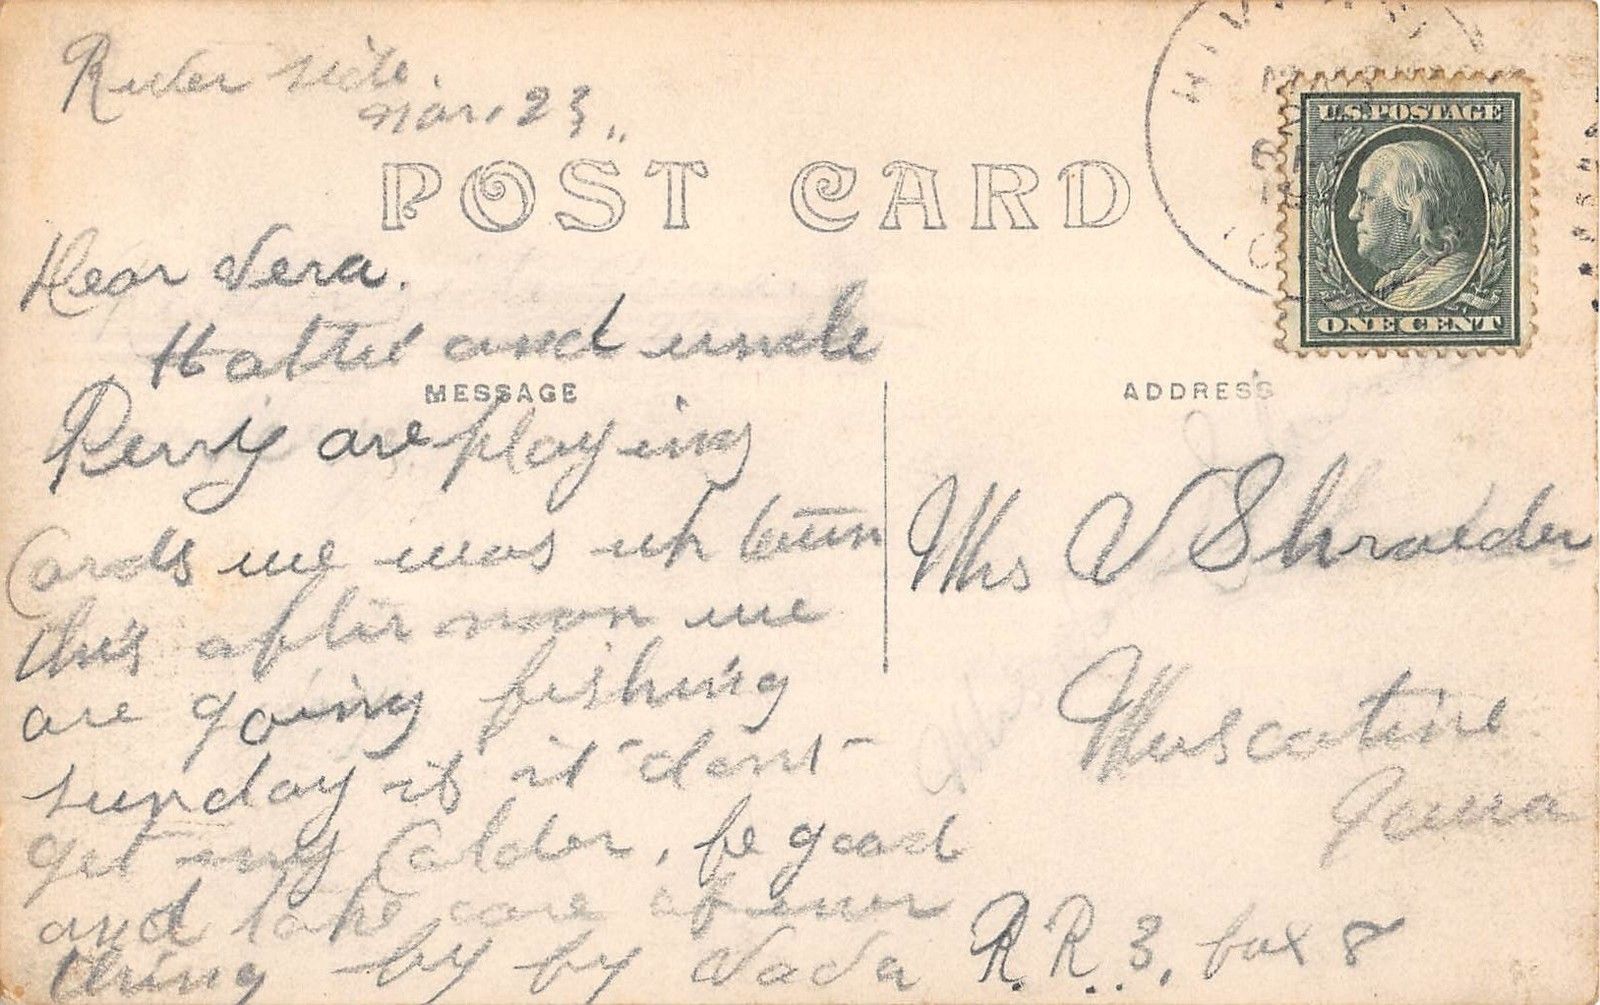 River side.
Mar. 23,,
U.S. POSTAGE
ONE CENT
POST CARD
Dear Vera.
Hattie and uncle
MESSAGE
Perry are playing
Cards we was up town
this afternoon we
are going fishing
sunday if it dont
get any Calder, be good
and take care of ever
thing by by Dada
ADDRESS
Mrs V Shraeder
Muscatine
Iowa
R.R. 3, box 8